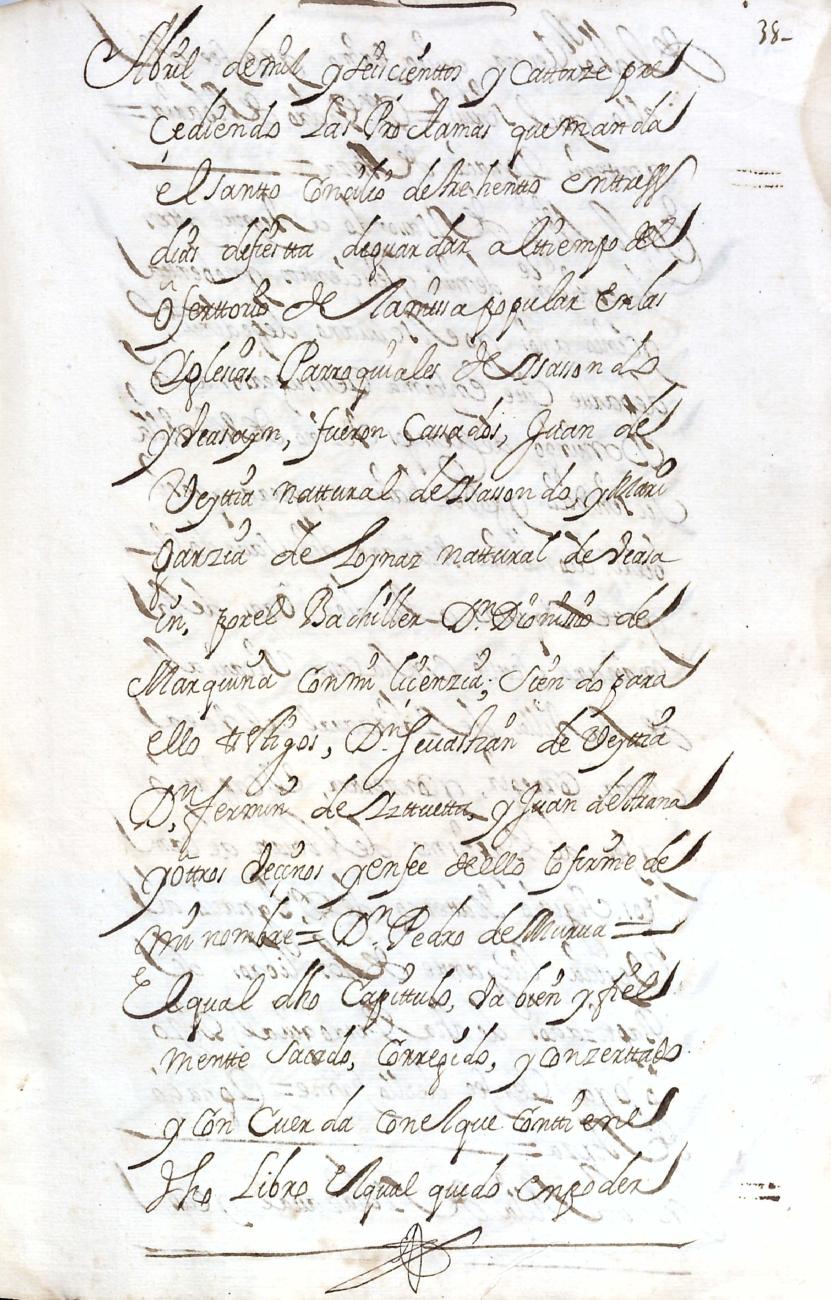 38-
Abril de mil y seiscienttos y Cattorze pre
cediendo Las Proclamas que manda
el santto Concilio de trehento en tres
dias de fiestta de guardar al ttiempo del
Oferttorio de la missa popular en las
Yglesias Parroquiales de Ysasondo
y Veasayn, fueron Cassados, Juan de
Veyttia nattural de Ysasondo, y Mari
Garzia de Loynaz nattural de Veasa
in, por el Bachiller Dn. Dionisio de
Marquina con mi licenzia; siendo para
ello ttestigos, Dn. Sevastian de Veyttia
Dn. fermin de Yzttuetta, y Juan de
y ottros Veçinos y en fee de ello lo firme de
mi nombre = Dn. Pedro de Murua =
El qual dho Capittulo, va bien y fiel
mentte Sacado, Corregido, y Conzerttado
y Con Cuerda con el que conttiene
dho Libro el qual quedo en poder